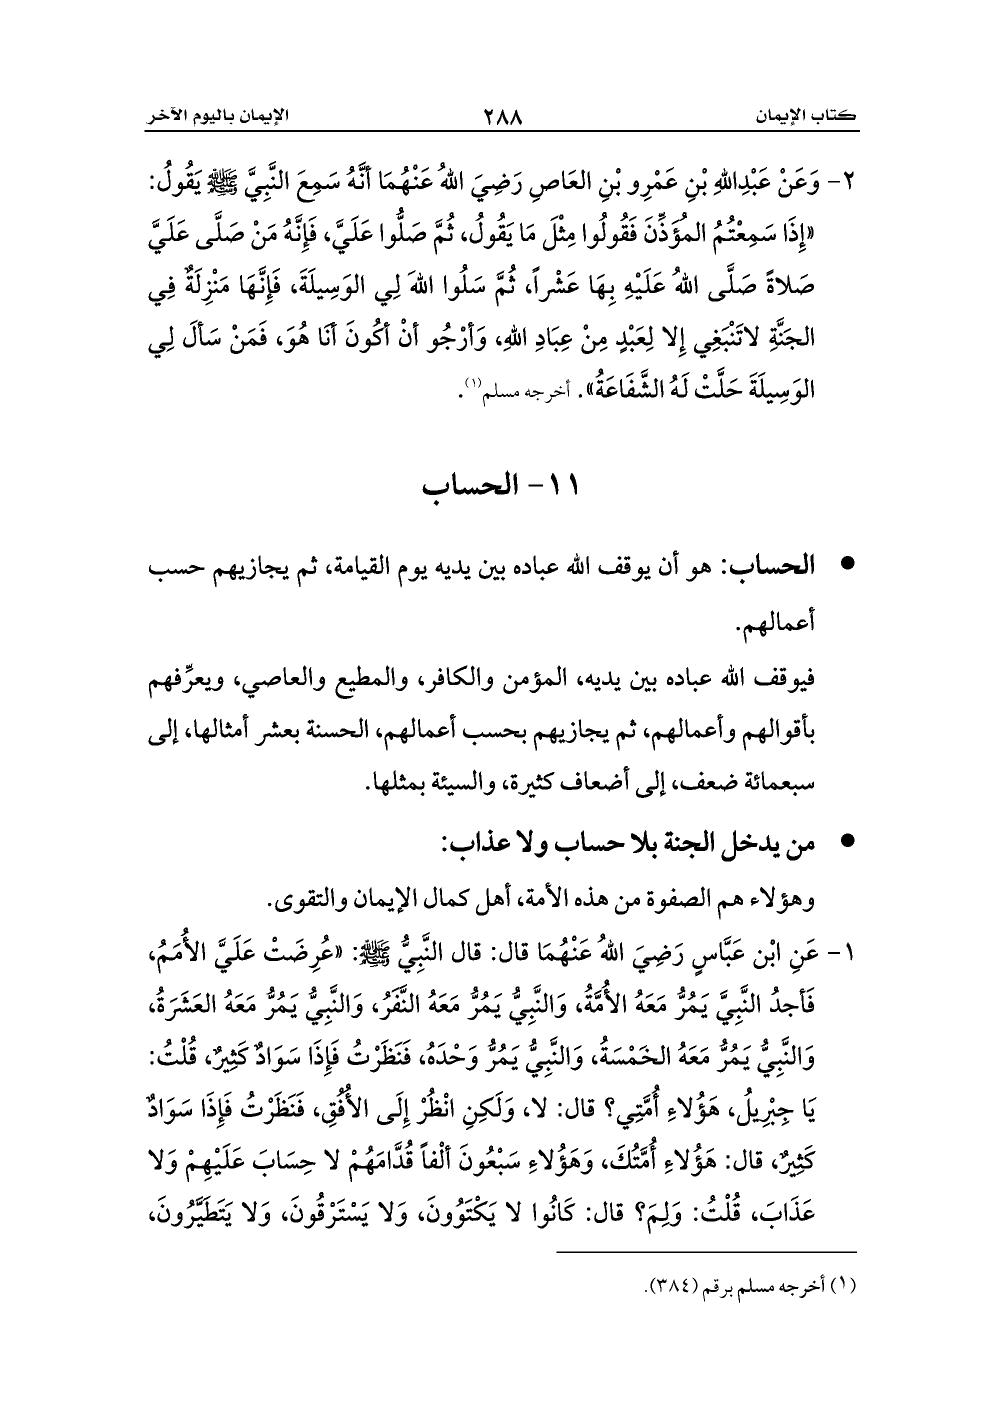 كتاب الإيمان ٢٨٨ الإيمان باليوم الآخر
٢- وَعَنْ عَبْدِاللهِ بْنِ عَمْرِو بْنِ العَاصِ رَضِيَ اللهُ عَنْهُمَا أنَّهُ سَمِعَ النَّبِيَّ ﷺ يَقُولُ:
«إِذَا سَمِعْتُمُ المُؤَذِّنَ فَقُولُوا مِثْلَ مَا يَقُولُ، ثُمَّ صَلُّوا عَلَيَّ، فَإِنَّهُ مَنْ صَلَّى عَلَيَّ
صَلاةً صَلَّى اللهُ عَلَيْهِ بِهَا عَشْراً، ثُمَّ سَلُوا اللهَ لِي الوَسِيلَةَ، فَإِنَّهَا مَنْزِلَةٌ فِي
الجَنَّةِ لاتَنْبَغِي إِلا لِعَبْدٍ مِنْ عِبَادِ اللهِ، وَأَرْجُو أنْ أكُونَ أنَا هُوَ، فَمَنْ سَألَ لِي
الوَسِيلَةَ حَلَّتْ لَهُ الشَّفَاعَةُ». أخرجه مسلم(١).
١١- الحساب
● الحساب: هو أن يوقف الله عباده بين يديه يوم القيامة، ثم يجازيهم حسب
أعمالهم.
فيوقف الله عباده بين يديه، المؤمن والكافر، والمطيع والعاصي، ويعرِّفهم
بأقوالهم وأعمالهم، ثم يجازيهم بحسب أعمالهم، الحسنة بعشر أمثالها، إلى
سبعمائة ضعف، إلى أضعاف كثيرة، والسيئة بمثلها.
● من يدخل الجنة بلا حساب ولا عذاب:
وهؤلاء هم الصفوة من هذه الأمة، أهل كمال الإيمان والتقوى.
١- عَنِ ابْن عَبَّاسٍ رَضِيَ اللهُ عَنْهُمَا قال: قال النَّبِيُّ ﷺ: «عُرِضَتْ عَلَيَّ الأُمَمُ،
فَأجدُ النَّبِيَّ يَمُرُّ مَعَهُ الأُمَّةُ، وَالنَّبِيُّ يَمُرُّ مَعَهُ النَّفَرُ، وَالنَّبِيُّ يَمُرُّ مَعَهُ العَشَرَةُ،
وَالنَّبِيُّ يَمُرُّ مَعَهُ الخَمْسَةُ، وَالنَّبِيُّ يَمُرُّ وَحْدَهُ، فَنَظَرْتُ فَإِذَا سَوَادٌ كَثِيرٌ، قُلْتُ:
يَا جِبْرِيلُ، هَؤُلاءِ أُمَّتِي؟ قال: لا، وَلَكِنِ انْظُرْ إِلَى الأُفُقِ، فَنَظَرْتُ فَإِذَا سَوَادٌ
كَثِيرٌ، قال: هَؤُلاءِ أُمَّتُكَ، وَهَؤُلاءِ سَبْعُونَ ألْفاً قُدَّامَهُمْ لا حِسَابَ عَلَيْهِمْ وَلا
عَذَابَ، قُلْتُ: وَلِمَ؟ قال: كَانُوا لا يَكْتَوُونَ، وَلا يَسْتَرْقُونَ، وَلا يَتَطَيَّرُونَ،
(١) أخرجه مسلم برقم (٣٨٤).